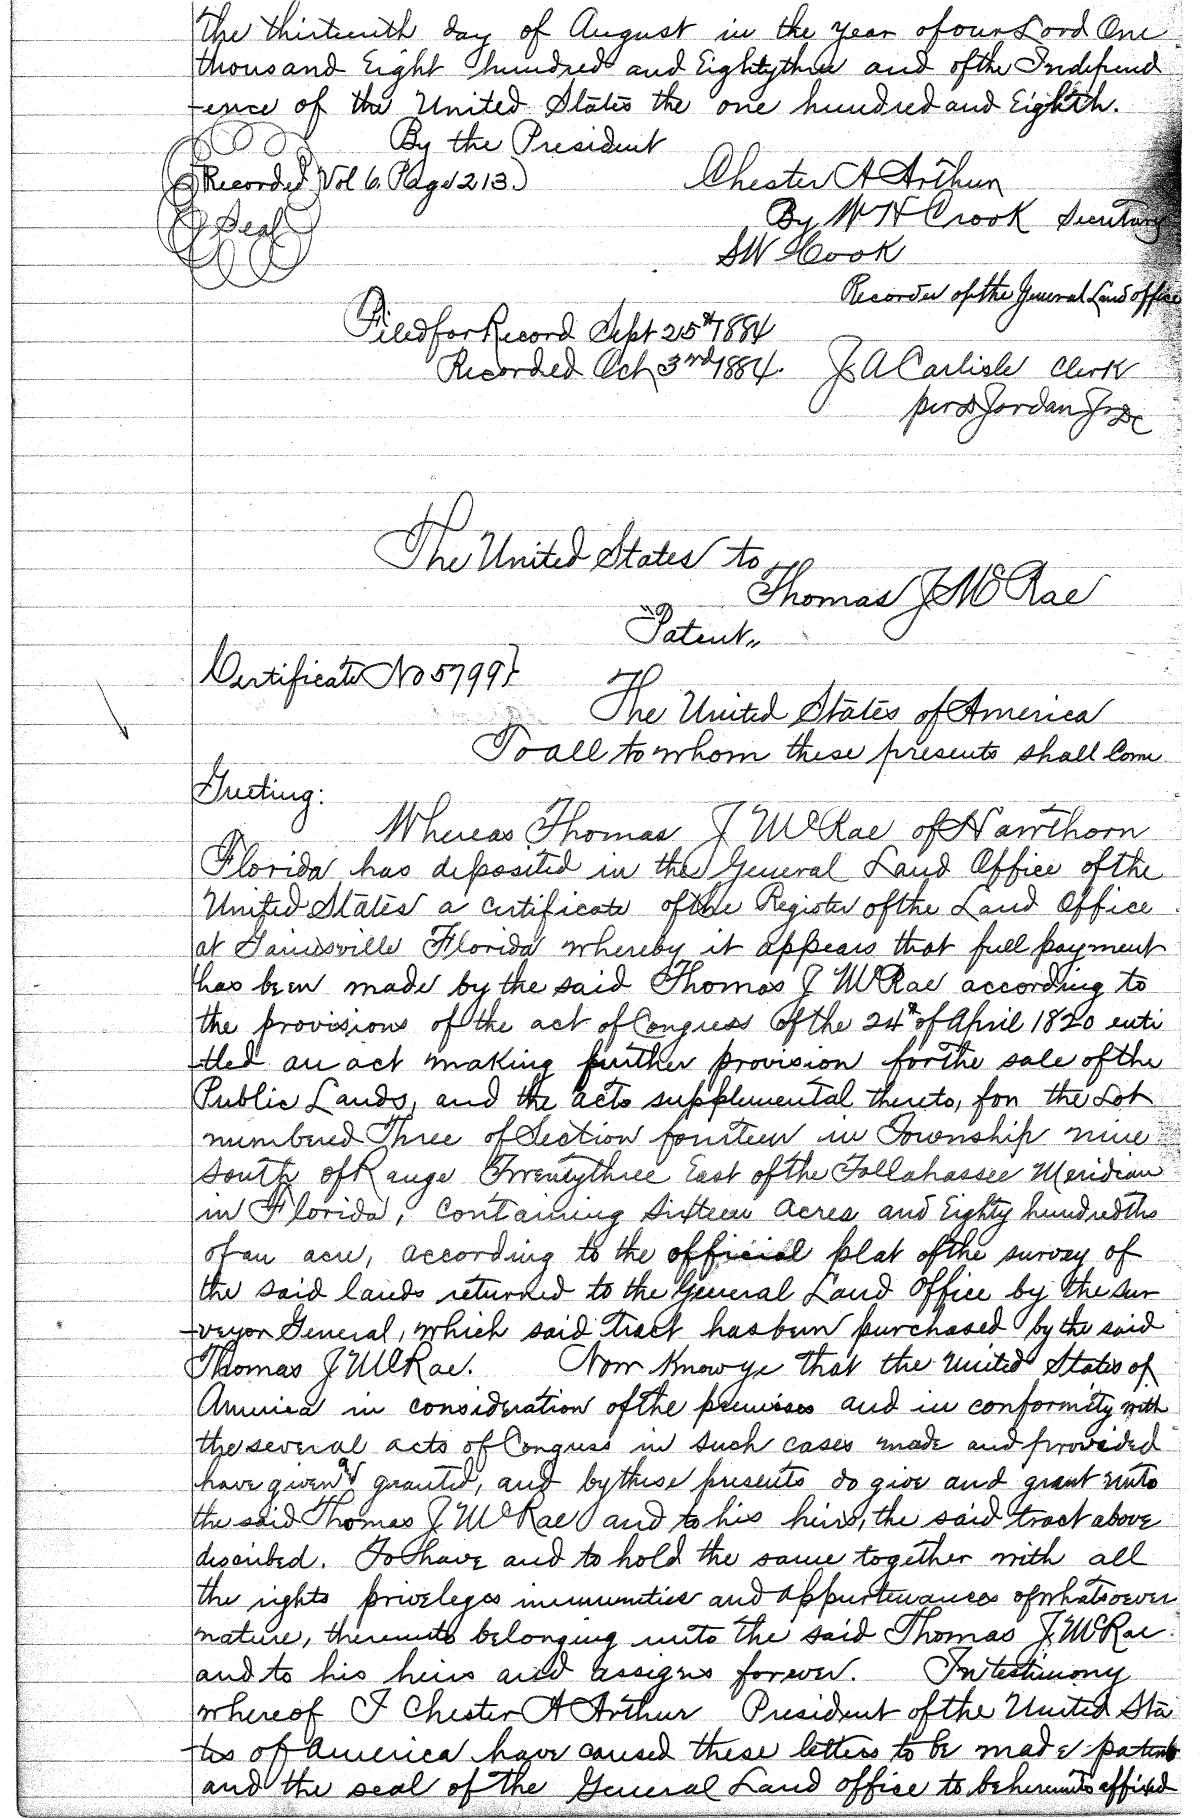 The thirteenth day of August in the year of our Lord One
thousand Eight hundred and Eightythree and of the Independ
-ence of the United States the one hundred and Eighth.
By the President
Recorded Vol 6. Page 213.)
Chester A Arthur
Seal
By W H Crook Secretary
S W Cook
Recorder of the General Land office
Filed for Record Sept 25th 1884
Recorded Oct 3rd 1884.
J A Carlisle Clerk
per Jordan Jr DC
The United States to
Thomas J McRae
"Patent"
Certificate No 5799}
The United States of America
To all to whom these presents shall Come
Greeting:
Whereas Thomas J McRae of Hawthorn
Florida has deposited in the General Land Office of the
United States a certificate of the Register of the Land Office
at Gainesville Florida whereby it appears that full payment
has been made by the said Thomas J McRae according to
the provisions of the act of Congress of the 24th of April 1820 enti
-tled an act making further provision for the sale of the
Public Lands, and the acts supplemental thereto, for the Lot
numbered Three of Section fourteen in Township nine
south of Range Twentythree East of the Tallahassee Meridian
in Florida, containing sixteen acres and Eighty hundredths
of an acre, according to the official plat of the survey of
the said lands returned to the General Land Office by the sur
-veyor General, which said Tract has been purchased by the said
Thomas J McRae. Now Know ye that the United States of
America in consideration of the premises and in conformity with
the several acts of Congress in such cases made and provided
have given & granted, and by these presents do give and grant unto
the said Thomas J McRae and to his heirs, the said tract above
described. To have and to hold the same together with all
the rights priveleges immunities and appurtenances of whatsoever
nature, thereunto belonging unto the said Thomas J. McRae
and to his heirs and assigns forever. In testimony
whereof I Chester A Arthur President of the United Sta
-tes of America have caused these letters to be made patent
and the seal of the General Land office to be hereunto affixed